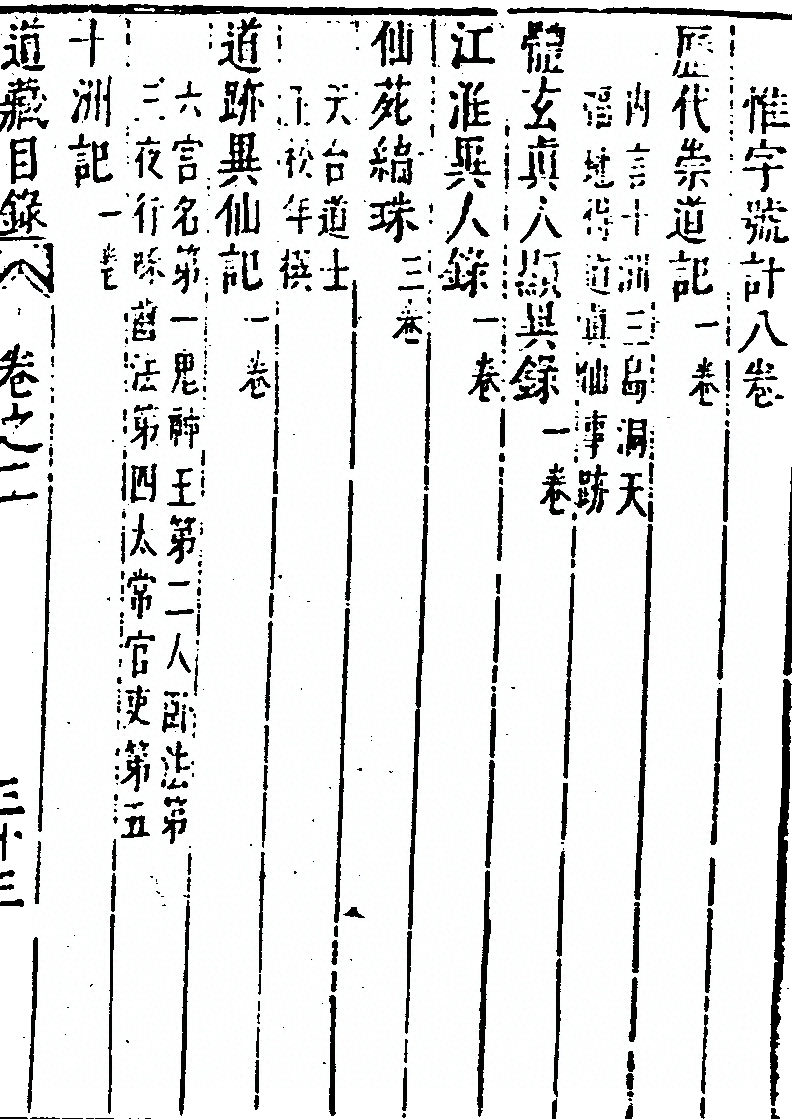 惟字號計八卷
歷代崇道記一卷
內言十洲三島洞天
福地得道眞仙事跡
體玄眞人顯異錄一卷
江淮異人錄一卷
仙苑編珠三卷
天台道士
王松年撰
道跡異仙記一卷
六宮名第一鬼神王第二人臥法第
三夜行啄齒法第四太常官吏第五
十洲記一卷
道藏目錄 卷之二 三十三